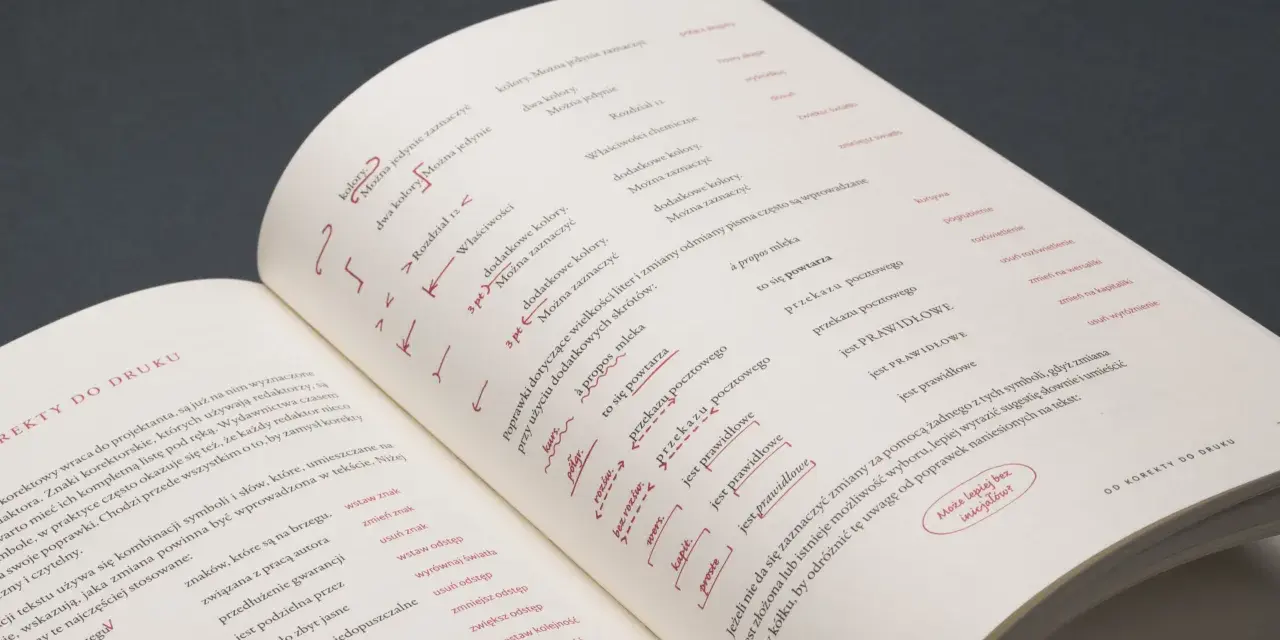 REKTY DO DRUKU
korektowy wraca do projektanta, są już na nim wyznaczone
daktora. Znaki korektorskie, których używają redaktorzy, są
warto mieć ich kompletną listę pod ręką. Wydawnictwa czasem
mbole, w praktyce często okazuje się też, że każdy redaktor nieco
a swoje poprawki. Chodzi przede wszystkim o to, by zamysł korekty
czny i czytelny.
cji tekstu używa się kombinacji symboli i słów, które, umieszczane na
e, wskazują, jaka zmiana powinna być wprowadzona w tekście. Niżej
my te najczęściej stosowane:
znaków, które są na brzegu. wstaw znak
związana z pracą autora zmień znak
przedłużenie gwarancji usuń znak
jest podzielna przez wstaw odstęp
do zbyt jasne wyrównaj światła
usuń odstęp
zmniejsz odstęp
zwiększ odstęp
staw kolejność
kolory. Można jedynie zaznaczyć kolory. Można jedynie zaznaczyć połącz akapity
dwa kolory. Można jedynie dwa kolory. Można jedynie nowy akapit
> Rozdział 12 < Rozdział 12 wyśrodkuj
Właściwości Właściwości chemiczne dosuń
3 pt dodatkowe kolory. Można zaznaczyć dodatkowe kolory. Można zaznaczyć zwiększ światło
3 pt dodatkowe kolory. Można zaznaczyć dodatkowe kolory. Można zaznaczyć zmniejsz światło
Poprawki dotyczące wielkości liter i zmiany odmiany pisma często są wprowadzane
przy użyciu dodatkowych skrótów:
kurs. à propos mleka à propos mleka kursywa
półgr. to się powtarza to się powtarza pogrubienie
rozśw. przekazu pocztowego przekazu pocztowego rozświetlenie
bez rozśw. przekazu pocztowego przekazu pocztowego usuń rozświetlenie
wers. jest prawidłowe jest PRAWIDŁOWE zmień na wersaliki
kapit. jest prawidłowe jest PRAWIDŁOWE zmień na kapitaliki
proste jest prawidłowe jest prawidłowe usuń wyróżnienie
Jeżeli nie da się zaznaczyć zmiany za pomocą żadnego z tych symboli, gdyż zmiana
jest złożona lub istnieje możliwość wyboru, lepiej wyrazić sugestię słownie i umieścić
w kółku, by odróżnić tę uwagę od poprawek naniesionych na tekst:
Może lepiej bez
inicjałów?
OD KOREKTY DO DRUKU